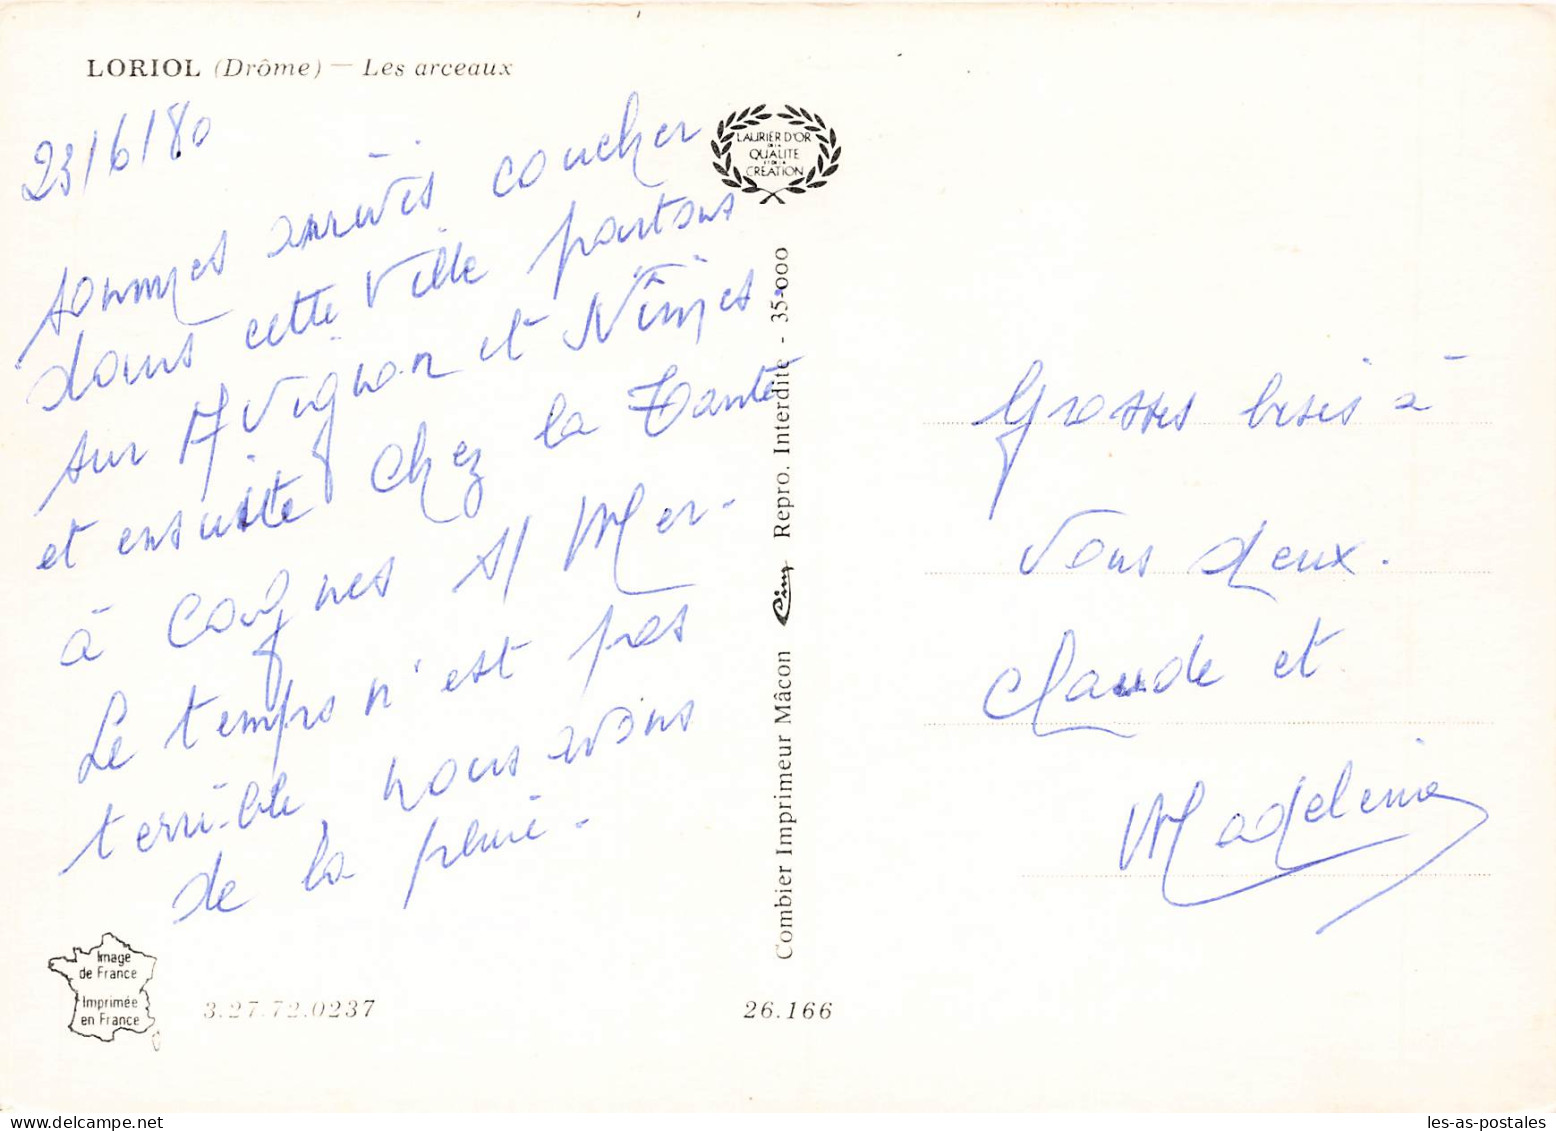 LORIOL (Drôme) — Les arceaux
23/6/80
sommes arrivés coucher
dans cette ville partons
sur Avignon et Nîmes.
et ensuite chez la Tante
à Cagnes s/ Mer-
Le temps n'est pas
terrible nous avons
de la pluie.
LAURIER D'OR
DE LA
QUALITE
ET DE LA
CREATION
Combier Imprimeur Mâcon Cim Repro. Interdite - 35-000
Grosses bises à
vous deux.
Claude et
Madeleine
Image
de France
Imprimée
en France
3.27.72.0237
26.166
les-as-postales